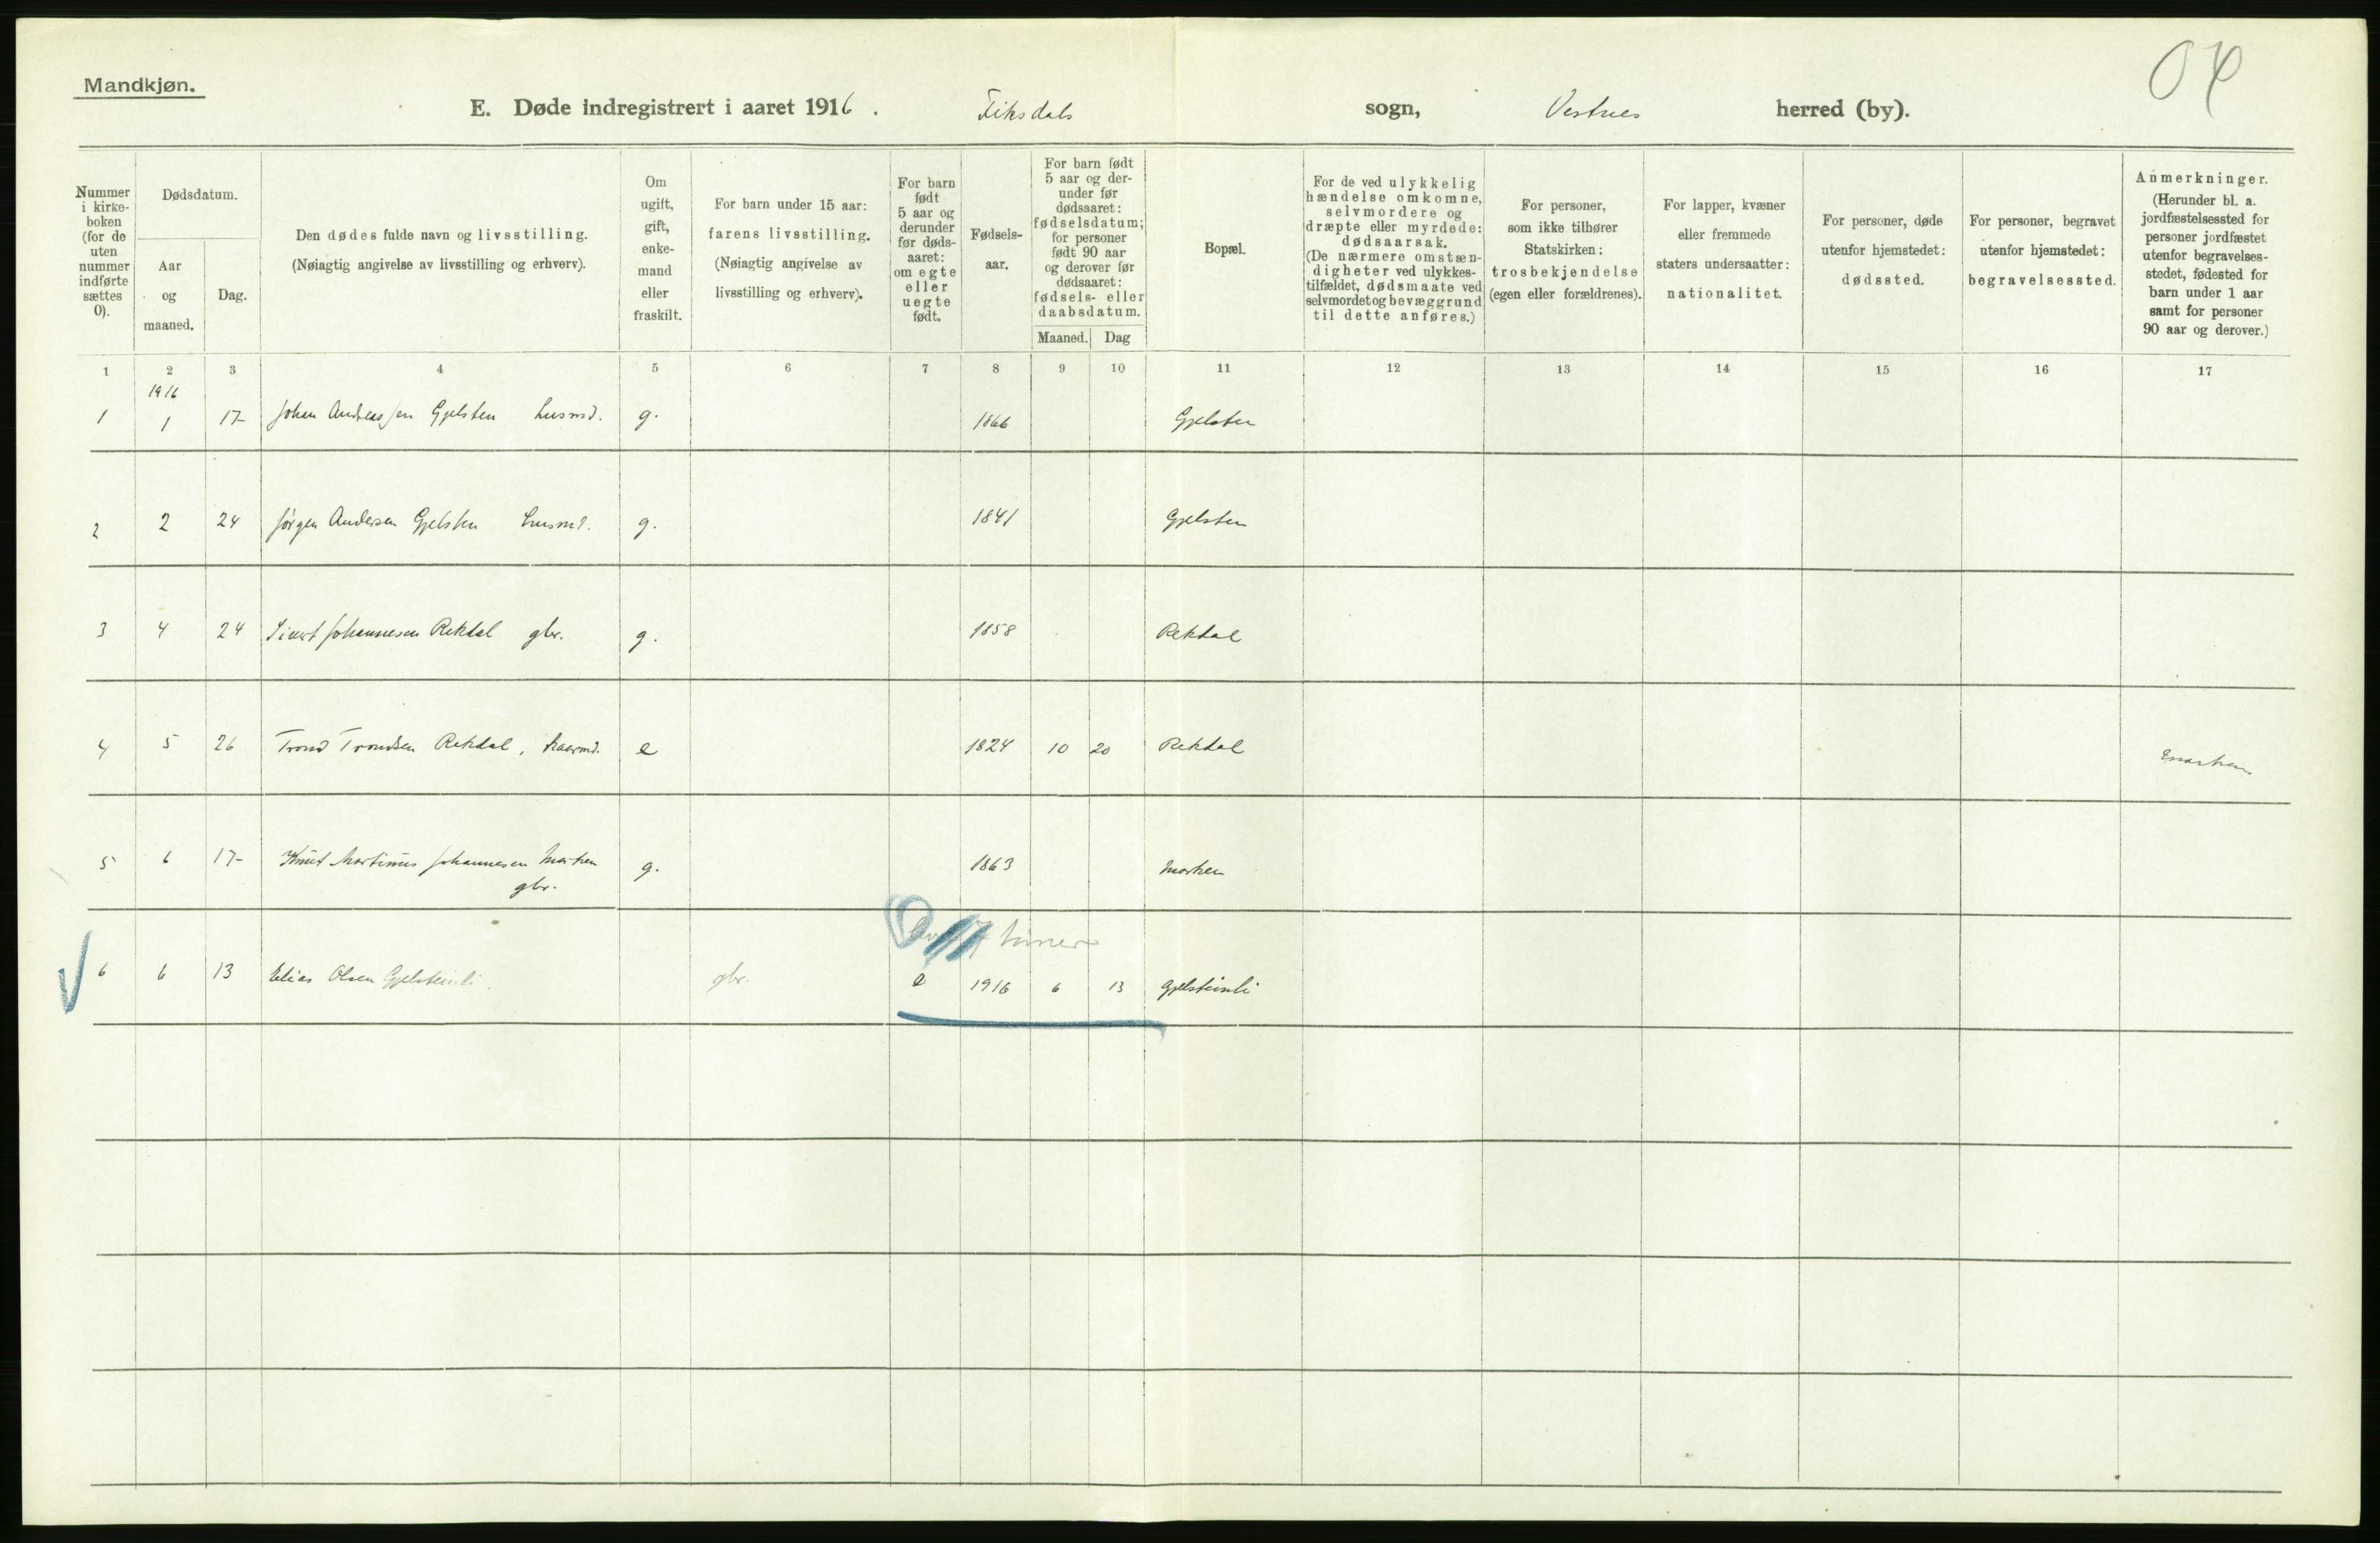 Mandkjøn.
E. Døde indregistrert i aaret 1916. Fiksdals sogn, Vestnes herred (by).
Nummer i kirke-boken (for de uten nummer indførte sættes 0).
Dødsdatum.
Aar og maaned.
Dag.
Den dødes fulde navn og livsstilling.
(Nøiagtig angivelse av livsstilling og erhverv).
Om ugift, gift, enke-mand eller fraskilt.
For barn under 15 aar: farens livsstilling.
(Nøiagtig angivelse av livsstilling og erhverv).
For barn født 5 aar og derunder før døds-aaret: om egte eller uegte født.
Fødsels-aar.
For barn født 5 aar og der-under før dødsaaret: fødselsdatum; for personer født 90 aar og derover før dødsaaret: fødsels- eller daabsdatum.
Maaned. Dag
Bopæl.
For de ved ulykkelig hændelse omkomne, selvmordere og dræpte eller myrdede: dødsaarsak.
(De nærmere omstæn-digheter ved ulykkes-tilfældet, dødsmaate ved selvmordet og bevæggrund til dette anføres.)
For personer, som ikke tilhører Statskirken: trosbekjendelse (egen eller forældrenes).
For lapper, kvæner eller fremmede staters undersaatter: nationalitet.
For personer, døde utenfor hjemstedet: dødssted.
For personer, begravet utenfor hjemstedet: begravelsessted.
Anmerkninger.
(Herunder bl. a. jordfæstelsessted for personer jordfæstet utenfor begravelses-stedet, fødested for barn under 1 aar samt for personer 90 aar og derover.)
1 2 3 4 5 6 7 8 9 10 11 12 13 14 15 16 17
1916
1 1 17 Johan Andreassen Gjelsten husmd. g. 1866 Gjelsten
2 2 24 Jörgen Andersen Gjelsten husmd. g. 1841 Gjelsten
3 4 24 Sivert Johannesen Rekdal gbr. g. 1858 Rekdal
4 5 26 Trond Trondsen Rekdal, kaarmd. e 1824 10 20 Rekdal
5 6 17 Knut Martinus Johannesen Morken g. 1863 Morken
gbr.
timer
6 6 13 Elias Olsen Gjelsteinli gbr. e 1916 6 13 Gjelsteinli